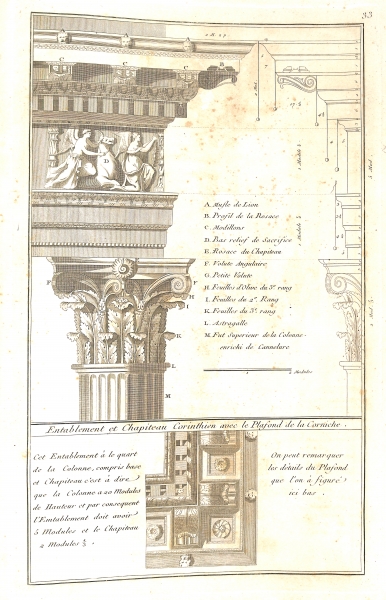 33
A. Mufle de Lion
B. Profil de la Rosace
C. Modillons
D. Bas relief de Sacrifice
E. Rosace du Chapiteau
F. Volute Angulaire
G. Petite Volute
H. Feuilles d'Olive du 3e rang
I. Feuilles du 2e Rang
K. Feuilles du 3e rang
L. Astragalle
M. Fut Superieur de la Colonne
enrichi de Cannelure
2 Modules
Entablement et Chapiteau Corinthien avec le Plafond de la Corniche.
Cet Entablement à le quart
de la Colonne, compris base
et Chapiteau c'est à dire
que la Colonne a 20 Modules
de Hauteur et par consequent
l'Entablement doit avoir
5 Modules et le Chapiteau
2 Modules 1/3.
On peut remarquer
les details du Plafond
que l'on à figuré
ici bas.